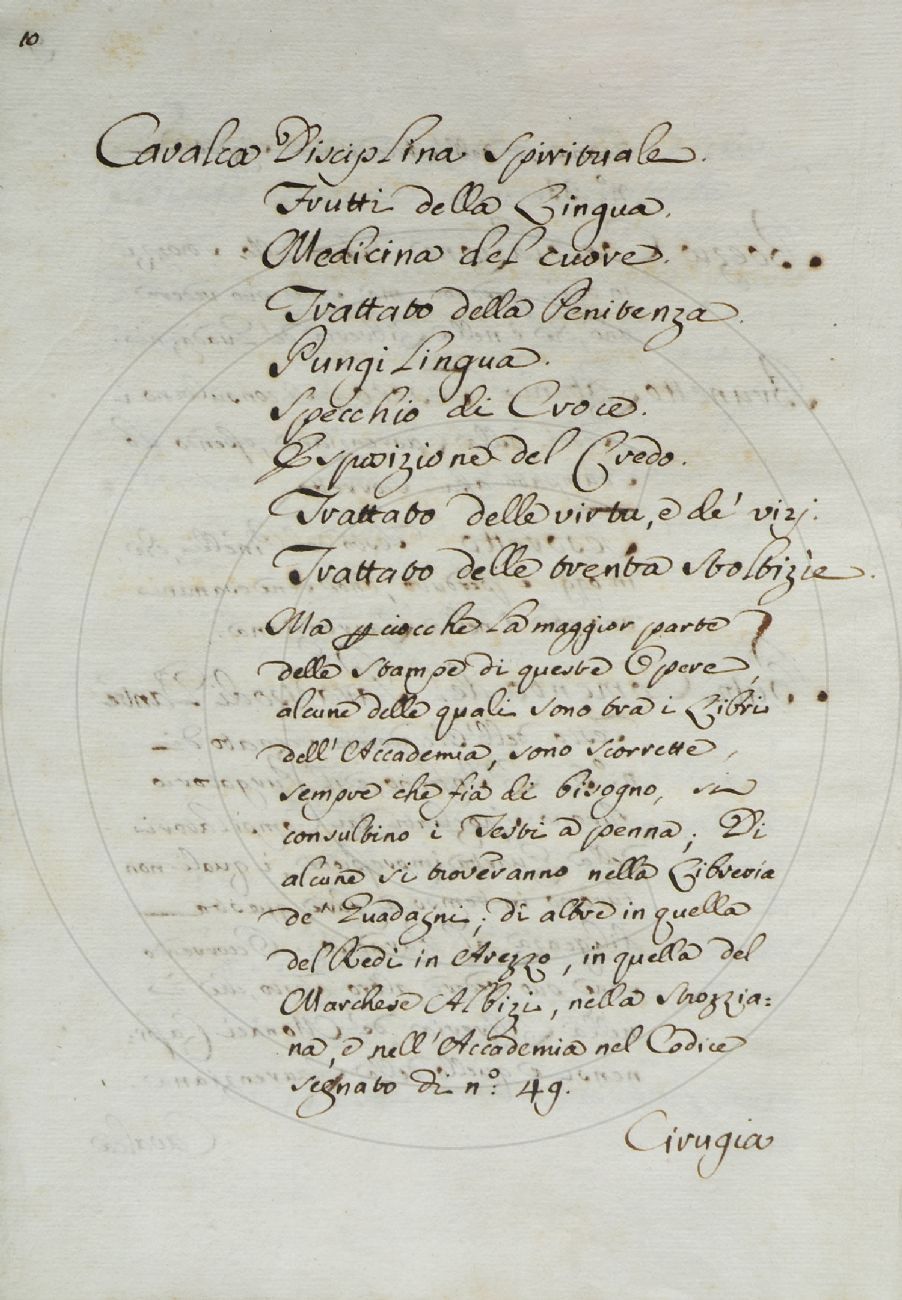 10
Cavalca Disciplina Spirituale.
Frutti della Lingua.
Medicina del cuore.
Trattato della Penitenza.
Pungilingua.
Specchio di Croce.
Esposizione del Credo.
Trattato delle virtu, e de' vizj.
Trattato delle trenta Stoltizie.
Ma perciocche la maggior parte
delle Stampe di queste Opere,
alcune delle quali sono tra i Libri
dell'Accademia, sono scorrette,
sempre che fia di bisogno, si
consultino i Testi a penna; Di
alcune si troveranno nella Libreria
de' Guadagni; di altre in quella
del Redi in Arezzo, in quella del
Marchese Albizi, nella Strozzia=
na, e nell'Accademia nel Codice
segnato di n.º 49.
Cirugia